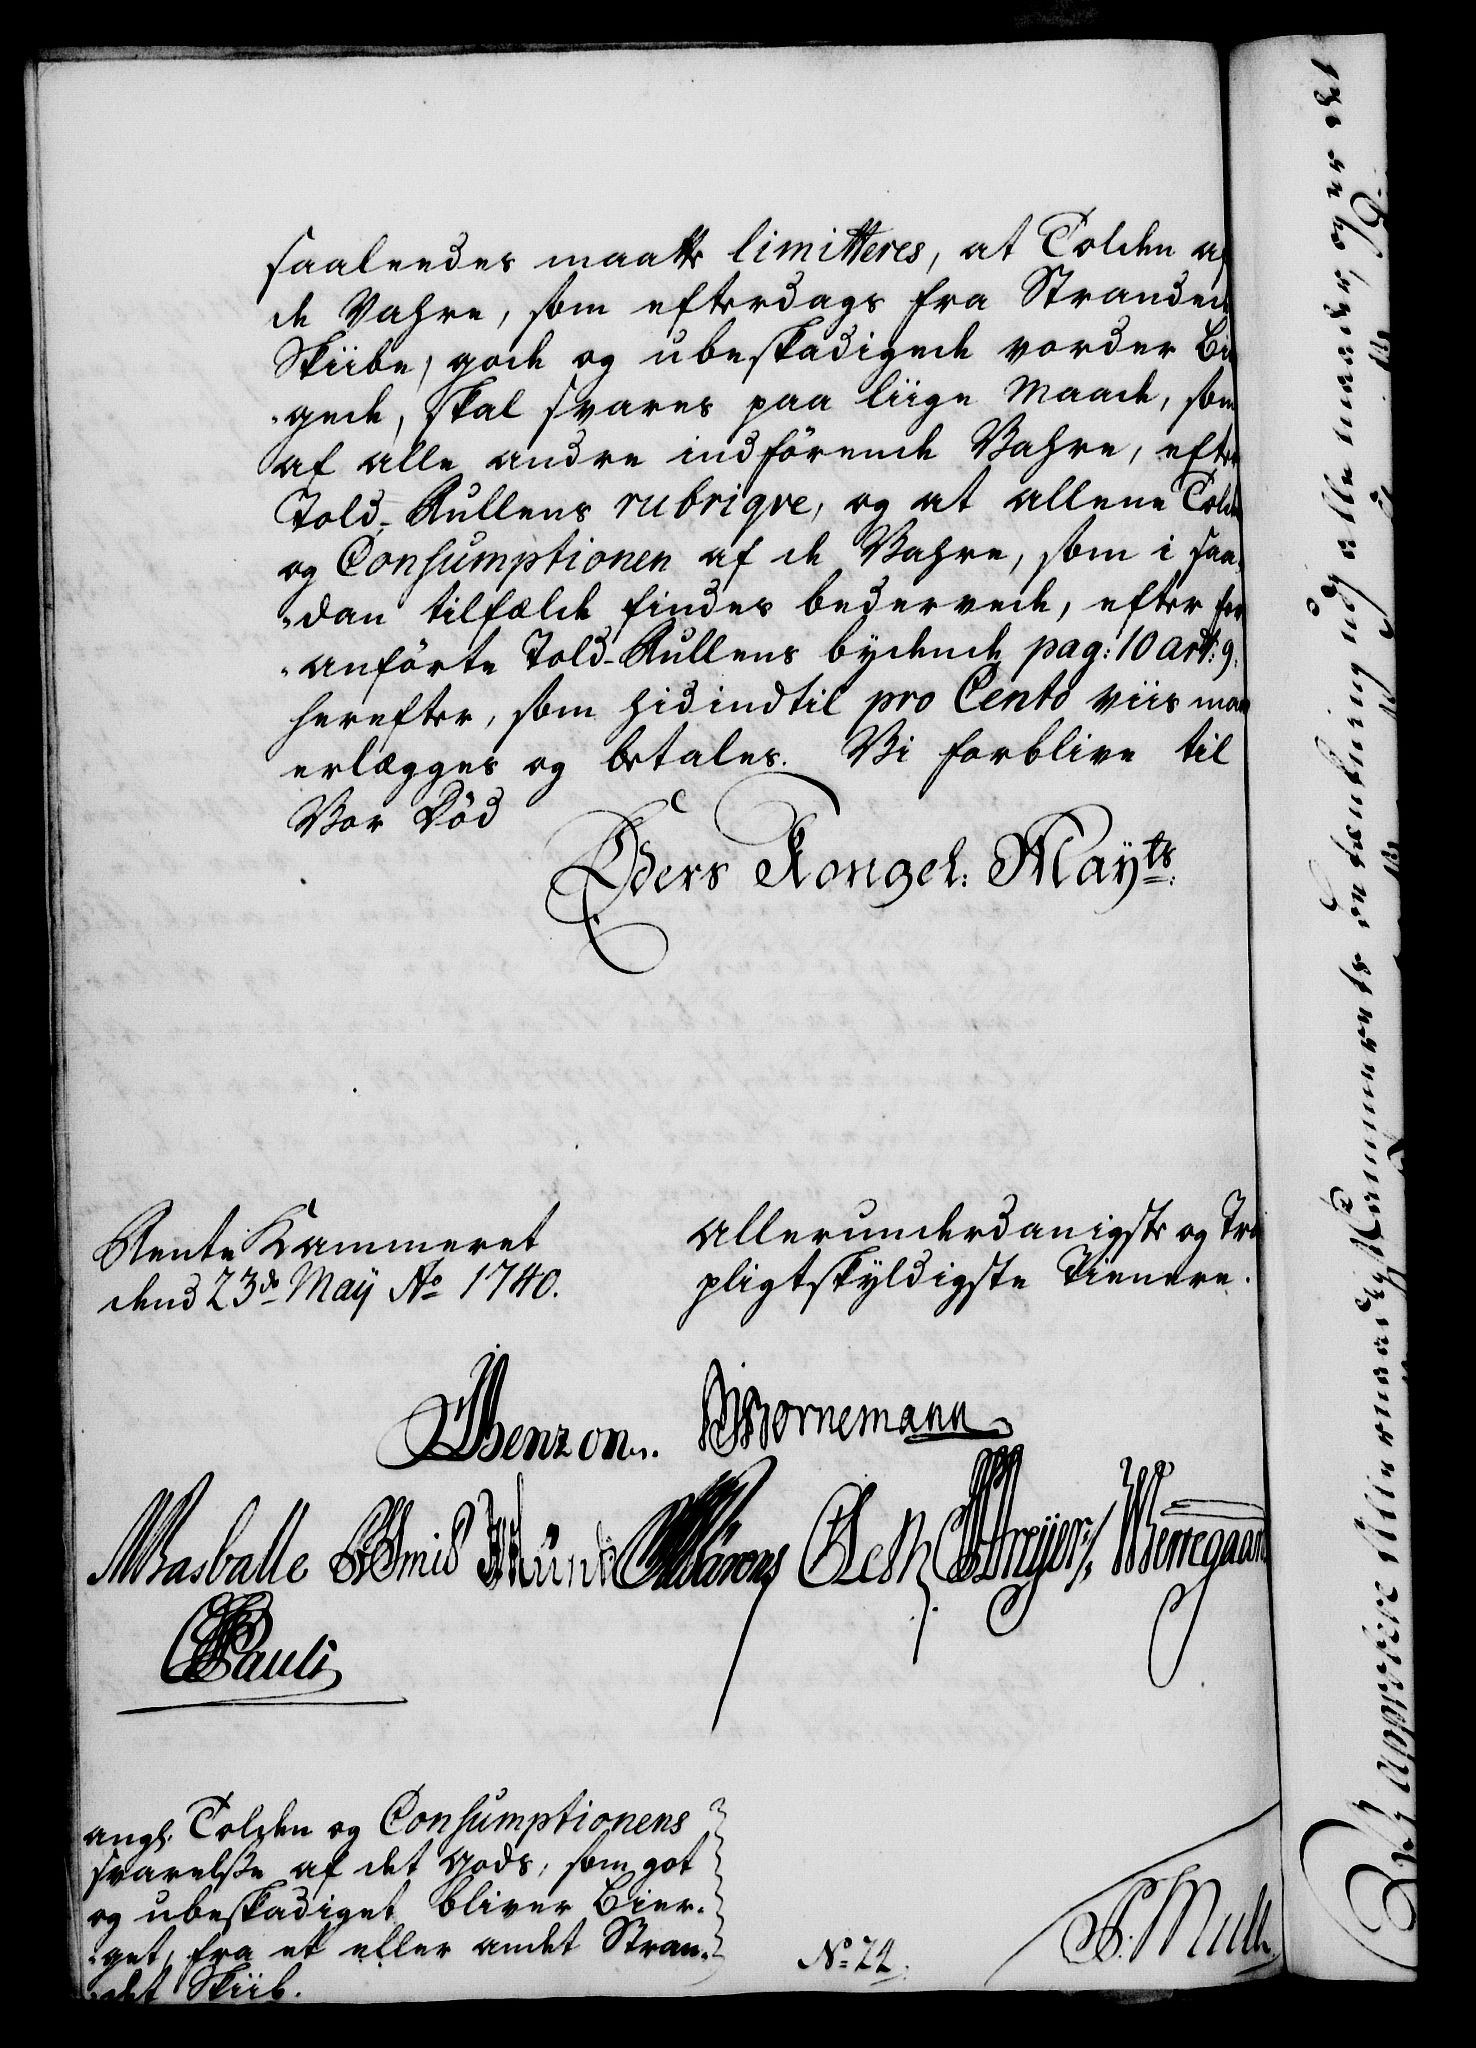 saaleedes maatte limitteres, at Tolden af
de Vahre, som efterdags fra Strandede
Skiibe, gode og ubeskadigede vorder Bier
-gede, skal svares paa liige Maade, som
af alle andre indförende Vahre, efter
Told-Rullens rubriqve, og at allene Tolden
og Consumptionen af de Vahre, som i saa-
-dan tilfælde findes bedervede, efter for
-anförte Told-Rullens bydende pag: 10 art: 9.
herefter, som hidindtil pro Cento viis maa
erlægges og betales. Vi forblive til
Vor Död
Eders Kongel: Mayts:
Rente Kammeret
dend 23de May Ao 1740.
allerunderdanigste og Tro
pligtskyldigste Tienere.
Benzon. Bornemann
Basballe Smid Munk Oeth Dreyer Wernegaard
Pauli
angl. Tolden og Consumptionens
svarelse af det gods, som got
og ubeskadiget bliver Bier-
-get, fra et eller andet Stran-
-det Skiib.
No 24.
Vi approbere Allernaadigst Kammerets betænkning udj alle maader, og er det